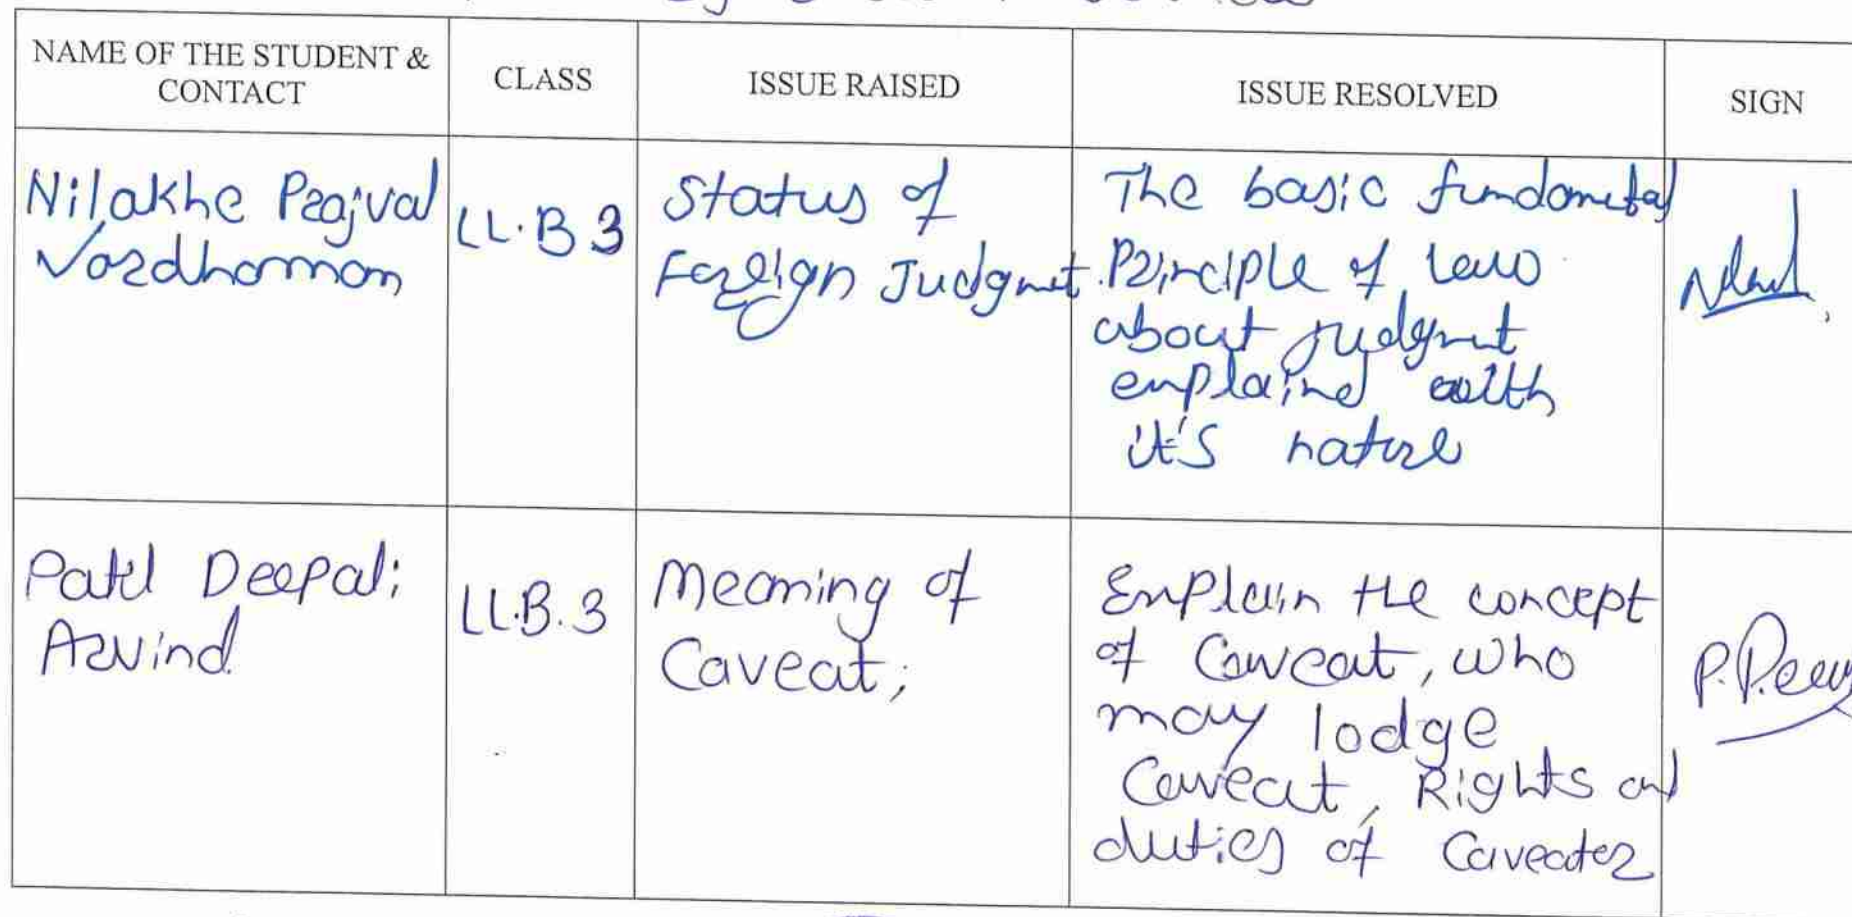 NAME OF THE STUDENT &
CONTACT
CLASS
ISSUE RAISED
ISSUE RESOLVED
SIGN
Nilakhe Prajval
Vardhaman
LL.B 3
Status of
Foreign Judgmet
The basic fundametal
Principle of law
about judgmt
explaind with
it's nature
Patil Deepali
Arvind
LL.B.3
Meaning of
Caveat;
Explain the concept
of Caveat, who
may lodge
Caveat, Rights and
duties of Caveater